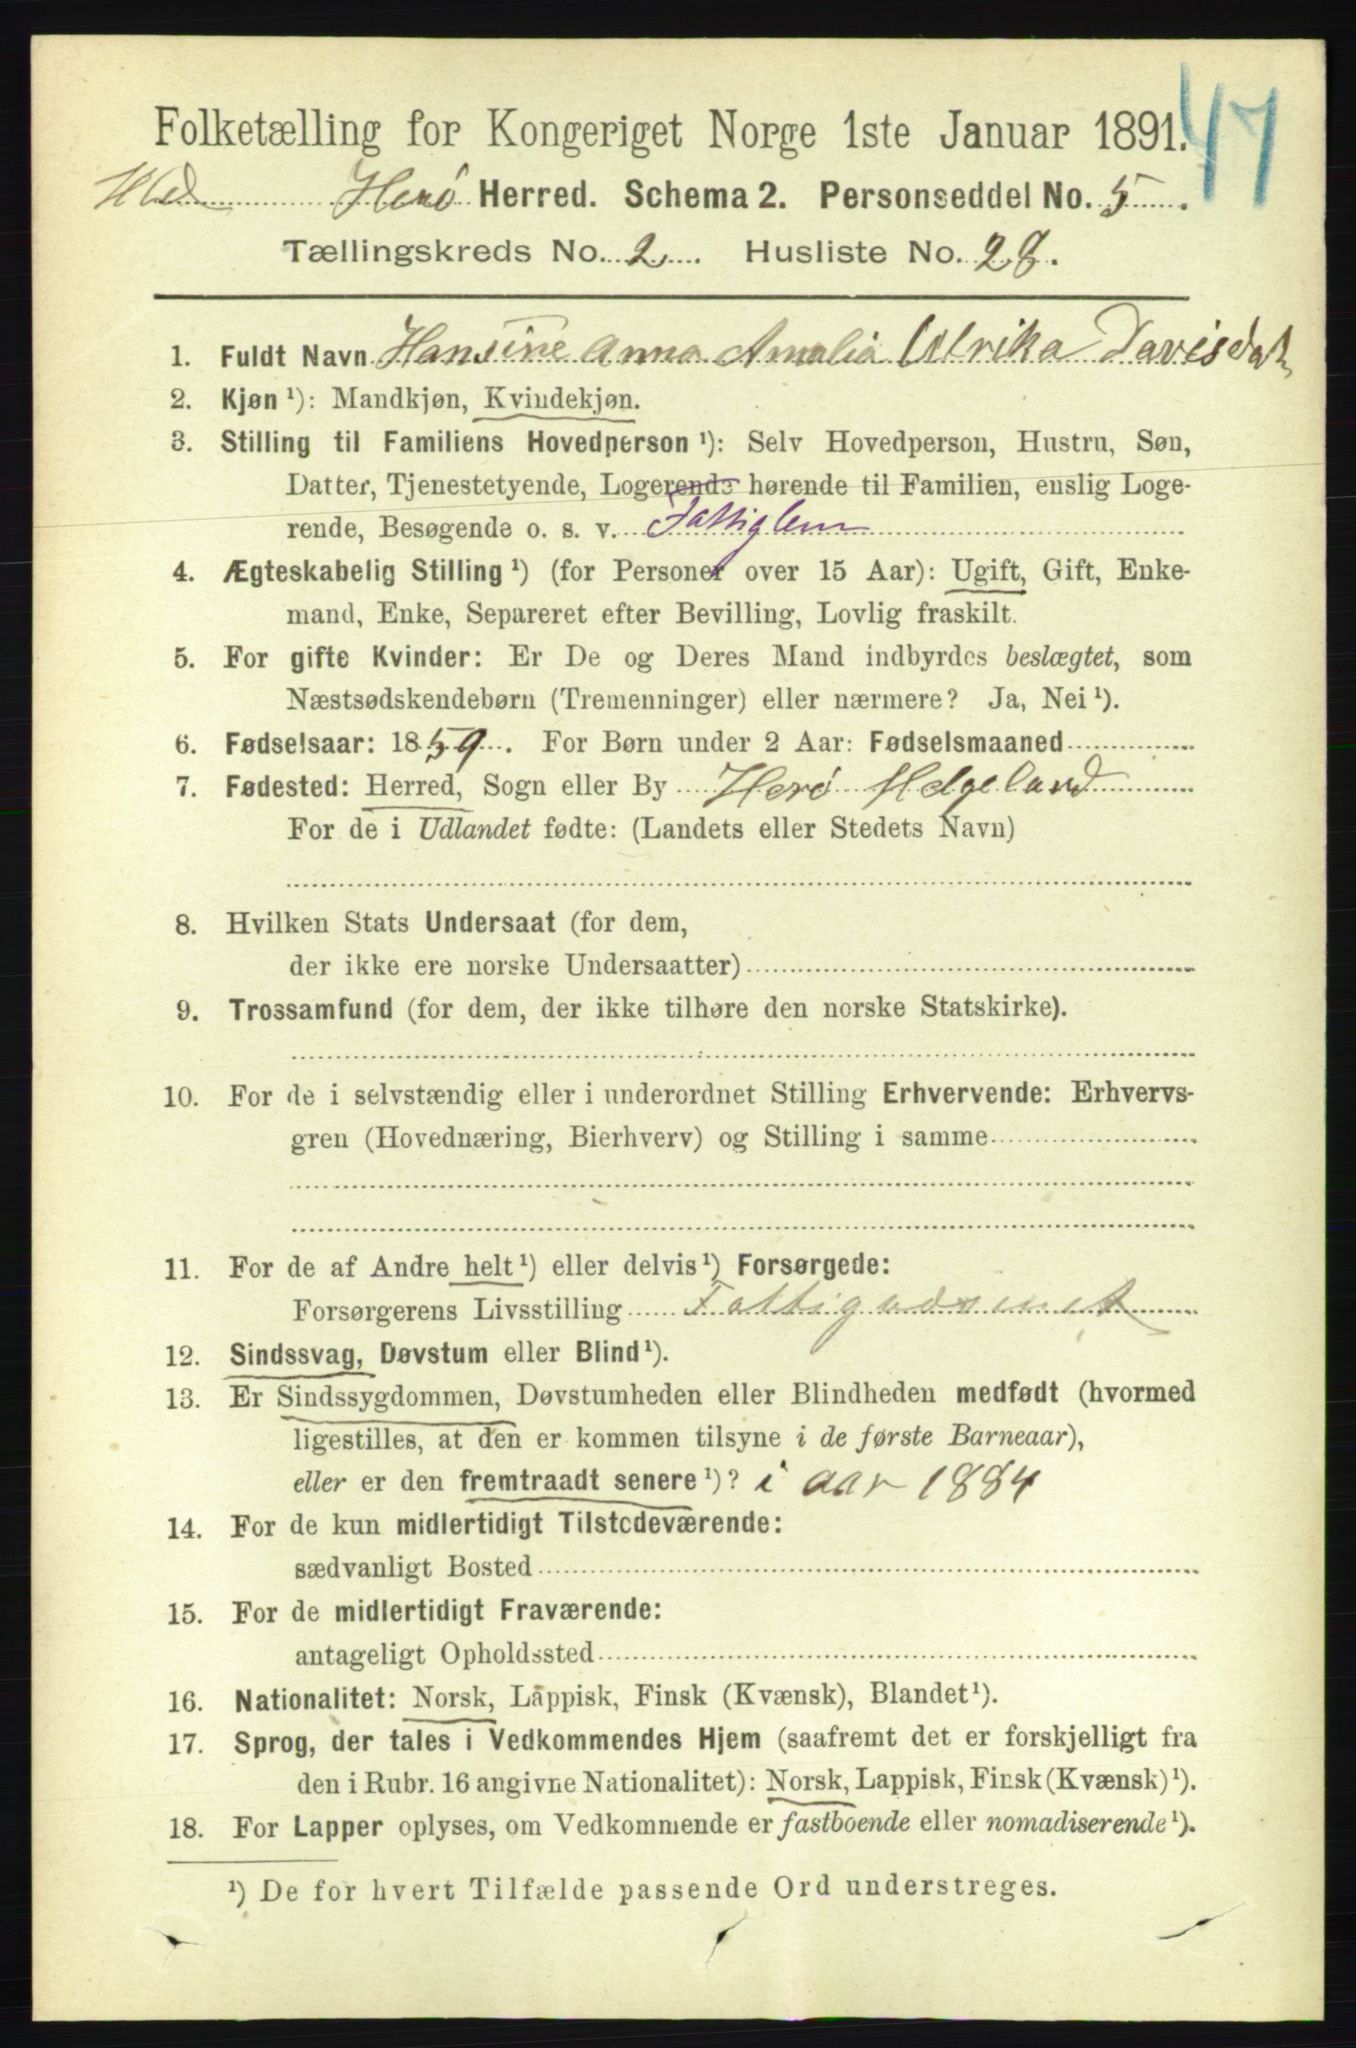 47
Folketælling for Kongeriget Norge 1ste Januar 1891.
Herø Herred. Schema 2. Personseddel No. 5.
Tællingskreds No. 2. Husliste No. 28.
1. Fuldt Navn Hansine Anna Amalia Ulrika Davisdat
2. Kjøn ¹): Mandkjøn, Kvindekjøn.
3. Stilling til Familiens Hovedperson ¹): Selv Hovedperson, Hustru, Søn,
Datter, Tjenestetyende, Logerende hørende til Familien, enslig Loge-
rende, Besøgende o. s. v. Fattiglem
4. Ægteskabelig Stilling ¹) (for Personer over 15 Aar): Ugift, Gift, Enke-
mand, Enke, Separeret efter Bevilling, Lovlig fraskilt.
5. For gifte Kvinder: Er De og Deres Mand indbyrdes beslægtet, som
Næstsødskendebørn (Tremenninger) eller nærmere? Ja, Nei ¹).
6. Fødselsaar: 1859. For Børn under 2 Aar: Fødselsmaaned
7. Fødested: Herred, Sogn eller By Herø Helgeland
For de i Udlandet fødte: (Landets eller Stedets Navn)
8. Hvilken Stats Undersaat (for dem,
der ikke ere norske Undersaatter)
9. Trossamfund (for dem, der ikke tilhøre den norske Statskirke).
10. For de i selvstændig eller i underordnet Stilling Erhvervende: Erhvervs-
gren (Hovednæring, Bierhverv) og Stilling i samme
11. For de af Andre helt ¹) eller delvis ¹) Forsørgede:
Forsørgerens Livsstilling Fattigvæsenet
12. Sindssvag, Døvstum eller Blind ¹).
13. Er Sindssygdommen, Døvstumheden eller Blindheden medfødt (hvormed
ligestilles, at den er kommen tilsyne i de første Barneaar),
eller er den fremtraadt senere ¹)? i aar 1884
14. For de kun midlertidigt Tilstedeværende:
sædvanligt Bosted
15. For de midlertidigt Fraværende:
antageligt Opholdssted
16. Nationalitet: Norsk, Lappisk, Finsk (Kvænsk), Blandet ¹).
17. Sprog, der tales i Vedkommendes Hjem (saafremt det er forskjelligt fra
den i Rubr. 16 angivne Nationalitet): Norsk, Lappisk, Finsk (Kvænsk) ¹).
18. For Lapper oplyses, om Vedkommende er fastboende eller nomadiserende ¹).
¹) De for hvert Tilfælde passende Ord understreges.